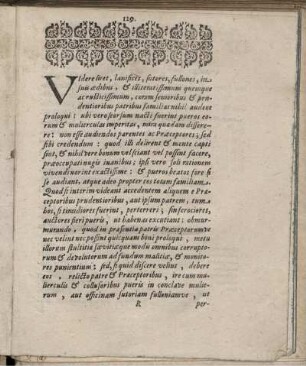 129.
Videre licet, lanifices, sutores, fullones, in-
suis ædibus, & illiteratissimum quemque
ac rusticissimum, coram senioribus & pru-
dentioribus patribus familias nihil audere
proloqui: ubi vero seorsum nacti fuerint pueros eo-
rum & mulierculas imperitas, mira quædam dissere-
re: non esse audiendos parentes ac Præceptores; sed
sibi credendum: quod illi delirent & mente capti
sint, & nihil vere bonum vel sciant vel possint facere,
præoccupati nugis inanibus; ipsi vero soli rationem
vivendi norint exactissime: & pueros beatos fore si
se audiant, atque adeo propter eos totam familiam.
Quod si interim videant accedentem aliquem è Præ-
ceptoribus prudentioribus, aut ipsum patrem; eum-
bus, si timidiores fuerint, perterreri; sin ferociores,
auctores fieri pueris, ut habenas excutiant: obmur-
murando, quod in præsentia patris Præceptorumve
nec velint nec possint quicquam boni proloqui, metu
illorum stultitiæ sævitiæque modis omnibus corrupto-
rum & devolutorum ad fundum malitiæ, & monito-
res punientium: sed, si quid discere velint, debere
eos, relicto patre & Præceptoribus, ire cum mu-
lierculis & collusoribus pueris in conclave mulie-
rum, aut officinam sutoriam fulloniamve, ut
R
per-